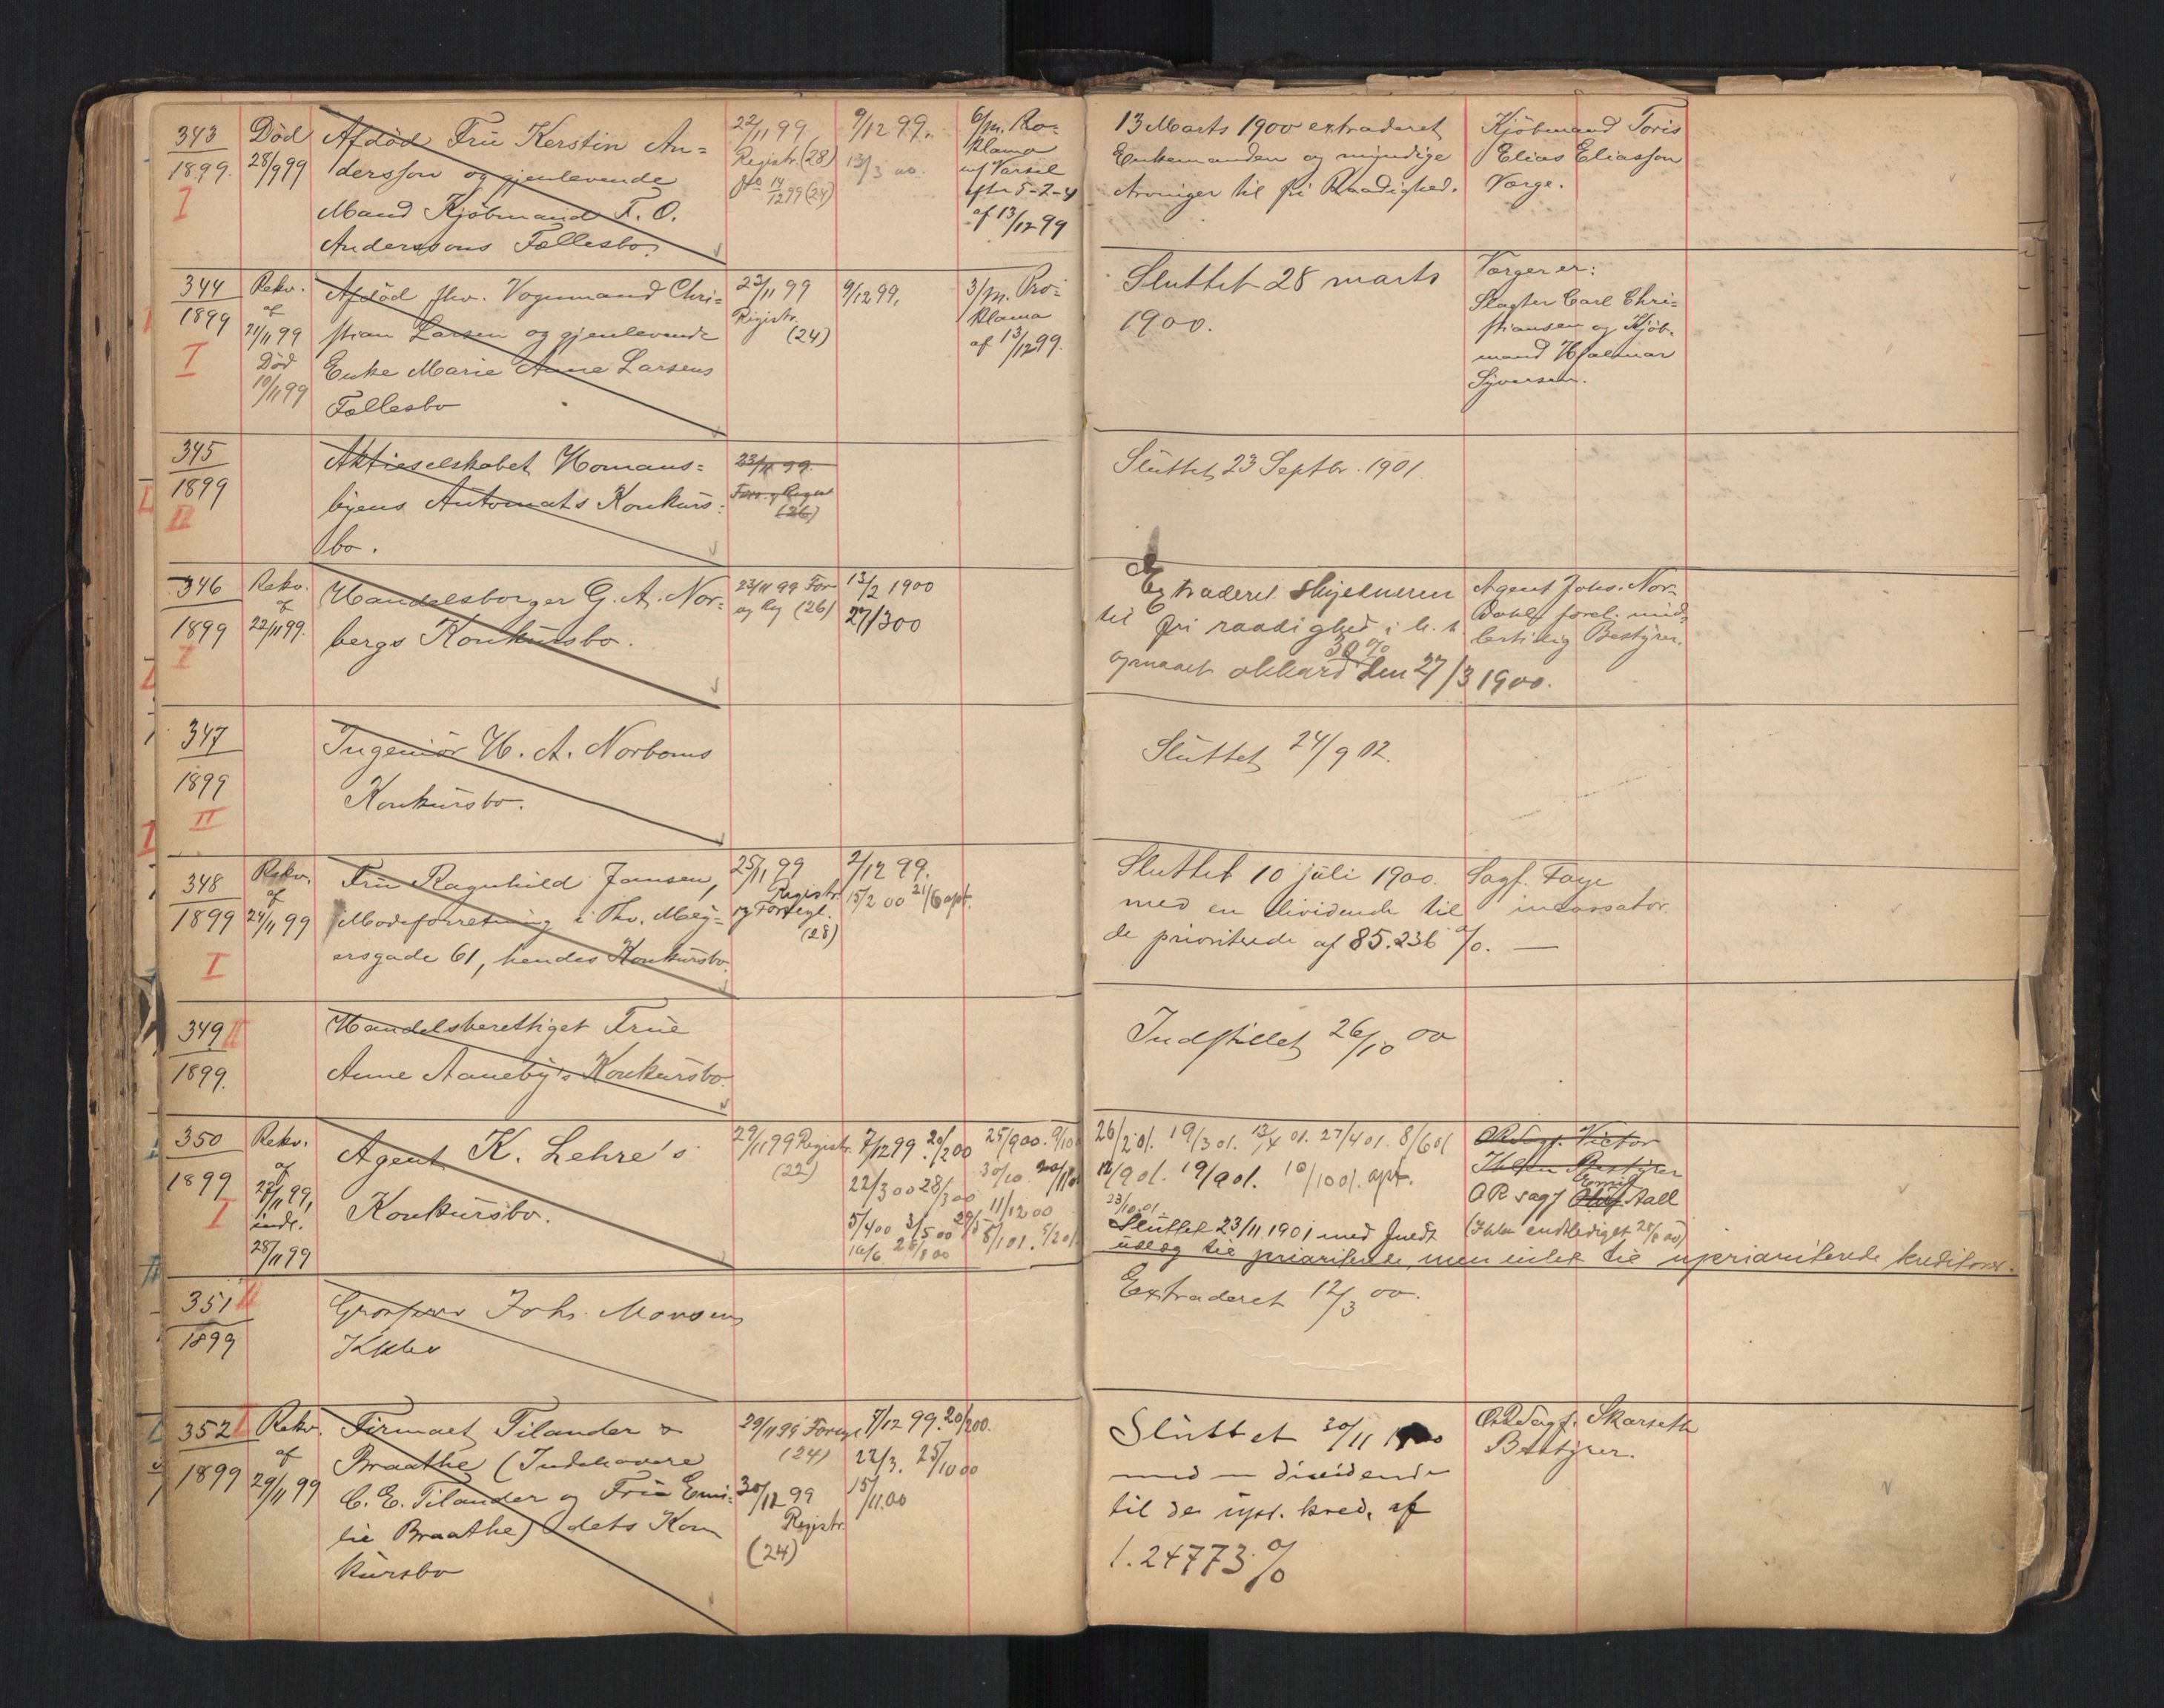 343
1899.
I
Død
28/9 99
Afdöd Frü Kerstin An=
dersson og gjenlevende
Mand Kjöbmand F. O.
Anderssons Fællesbo.
22/11 99
Registr. (28)
14/12 99 (24)
9/12 99.
13/3 00.
6/m. Pro=
klama
m/ Varsel
efter 5-2-4
af 13/12 99
13 Marts 1900 extraderet
Enkemanden og myndige
Arvinger til fri Raadighed.
Kjöbmand Toris
Elias Eliasson
Værge.
344
1899
I
Rekv.
af
21/11 99
Död
10/11 99
Afdöd fhv. Vognmand Chri=
stian Larsen og gjenlevende
Enke Marie Anne Larsens
Fællesbo
22/11 99
Registr.
(24)
9/12 99.
3/m. Pro=
klama
af 13/12 99.
Sluttet 28 marts
1900.
Værger er:
Slagter Carl Chri=
stiansen og Kjöb=
mand Hjalmar
Syversen.
345
1899
II
Aktieselskabet Homans=
byens Automats Konkurs=
bo.
23/11 99.
(26)
Sluttet 23 Septbr. 1901.
346
1899
I
Rekv.
af
22/11 99.
Handelsborger G. A. Nor=
bergs Konkursbo.
23/11 99 For
og Reg (26)
13/2 1900
27/3 00
Extraderet skyldneren
til fri raadighed i h. t.
opnaaet akkord 30% den 27/3 1900.
Agent Johs. Nor=
dahl forel. mid=
lertidig Bestyrer.
347
1899
II
Ingeniör H. A. Norboms
Konkursbo.
Sluttet 24/9 02.
348
1899
I
Rekv.
af
24/11 99
Frü Ragnhild Jansen,
Modeforretning i Thv. Mey=
ersgade 61, hendes Konkursbo.
25/11 99
Registr.
og Forsegl.
(28)
2/12 99.
15/2 00 21/6 apt.
Sluttet 10 juli 1900.
med en dividende til
de prioriterede af 85.236 %. —
Sagf. Faye
incassator.
349 II
1899.
Handelsberettiget Frue
Anne Aaneby's Konkursbo.
Indstillet 26/10 00
350
1899
I
Rekv.
af
27/11 99,
indt.
28/11 99
Agent K. Lehre's
Konkursbo.
29/11 99 Registr.
(22)
7/12 99. 20/2 00
22/3 00 28/3 00
5/4 00 3/5 00
25/9 00.
30/10
11/12 00
26/2 01. 19/3 01. 13/4 01. 27/4 01. 8/6 01
12/9 01. 19/9 01. 10/10 01. apt.
23/10 01.
Sluttet 23/11 1901 med fuldt
udlæg til prioriterede, men intet til uprioriterede kreditorer.
ORsagf. Victor
Ihlen Bestyrer
ORsagf Oluf Aall
(Ihlen entlediget 28/8 00)
351 II
1899
Grosserer Johs. Monsens
Kkbo
Extraderet 12/3 00.
352 I
1899
Rekv.
af
29/11 99
Firmaet Tilander &
Braathe (Indehavere
C. E. Tilander og Frü Emi=
lie Braathe) dets Kon
kursbo
29/11 99 Forsegl
(24)
30/12 99
Registr.
(24)
7/12 99. 20/2 00.
22/3. 25/10 00
15/11.00
Sluttet 30/11 1900
med en dividende
til de upr. kred. af
1.24773 %
ORsagf. Skarseth
Bestyrer.